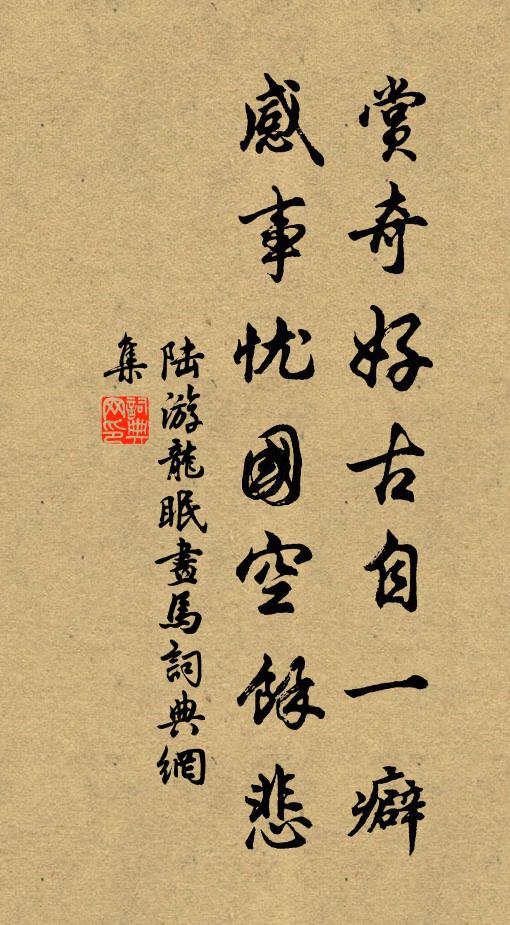 赏奇好古自一癖
感事忧國空餘悲
陆游龍眠畫馬詞典網
集
詞典网印